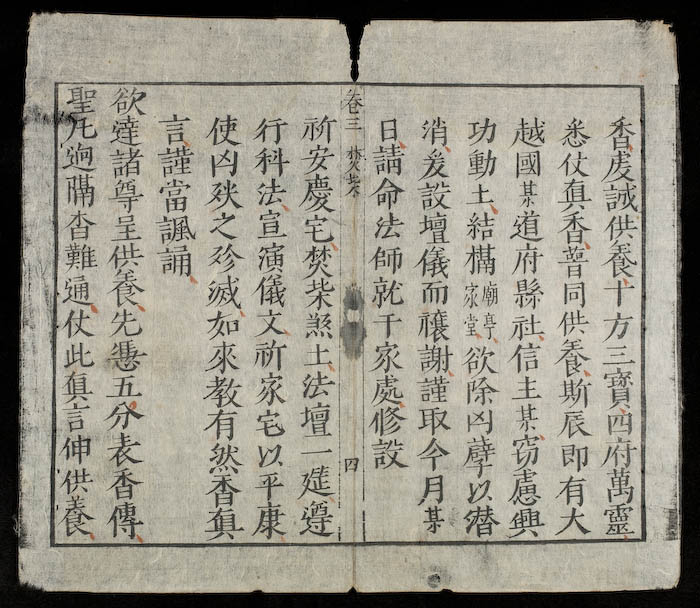 香虔誠供養十方三寶四府萬靈
悉仗眞香普同供養斯辰即有大
越國某道府縣社信主某窃慮興
功動土結構廟亭家堂欲除凶孽以潜
消爰設壇儀而禳謝謹取今月某
日請命法師就于家處修設
卷三 焚柴 四
祈安慶宅焚柴煞土法壇一筵遵
行科法宣演儀文祈家宅以平康
使凶殃之殄滅如來教有然香眞
言謹當諷誦
欲達諸尊呈供養先憑五分表香傳
聖凡逈隔杳難通仗此眞言伸供養